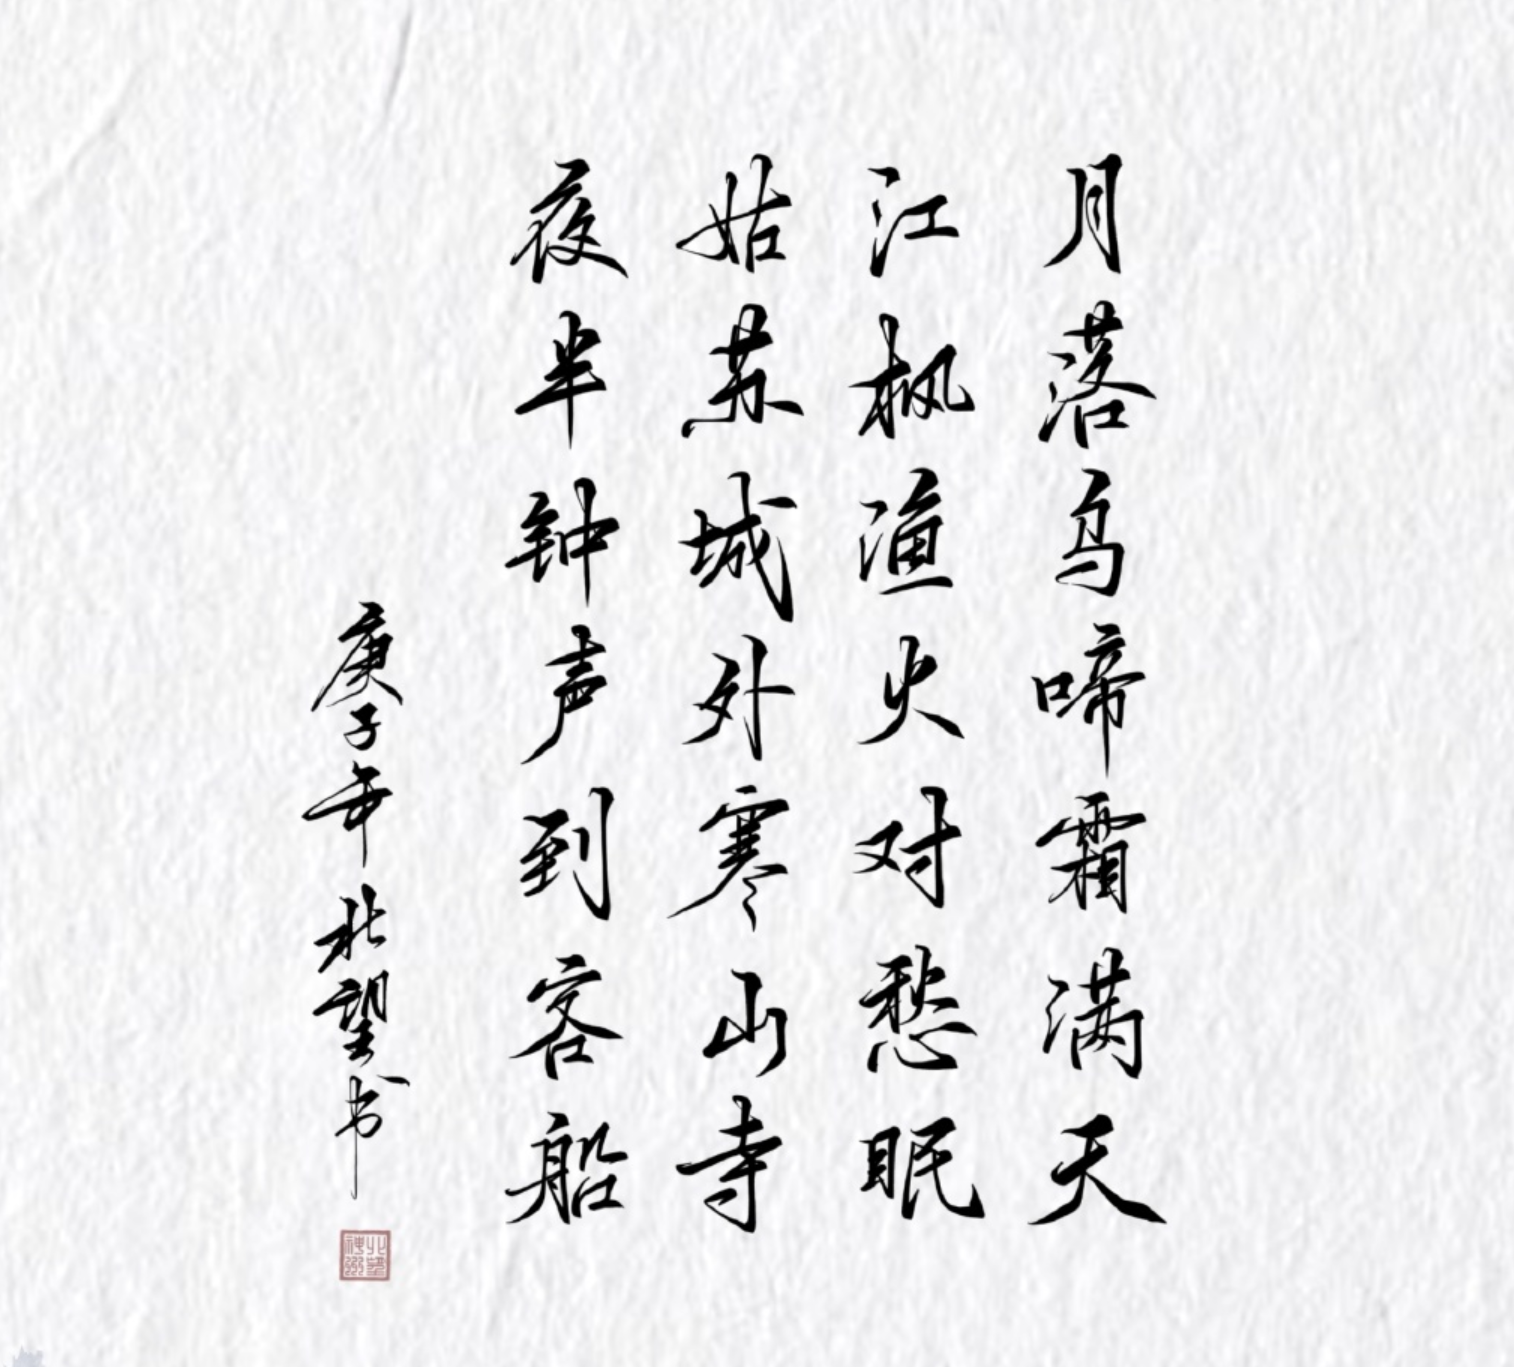 月落乌啼霜满天
江枫渔火对愁眠
姑苏城外寒山寺
夜半钟声到客船
庚子年北望书